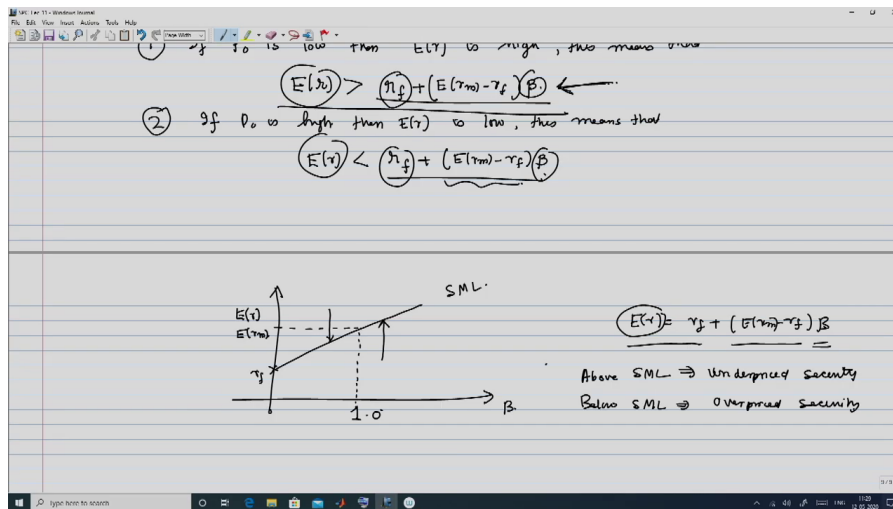 SPC Lec 11 - Windows Journal
File Edit View Insert Actions Tools Help
Page Width
1 If P₀ is low then E(r) is high, this means that
E(r) > r_f + (E(r_m) - r_f) β.
2 If P₀ is high then E(r) is low, this means that
E(r) < r_f + (E(r_m) - r_f) β
SML.
E(r)
E(r_m)
r_f
1.0
β.
E(r) = r_f + (E(r_m) - r_f) β
Above SML ⇒ Underpriced security
Below SML ⇒ Overpriced security
9/9
Type here to search
ENG
11:29
12-05-2020